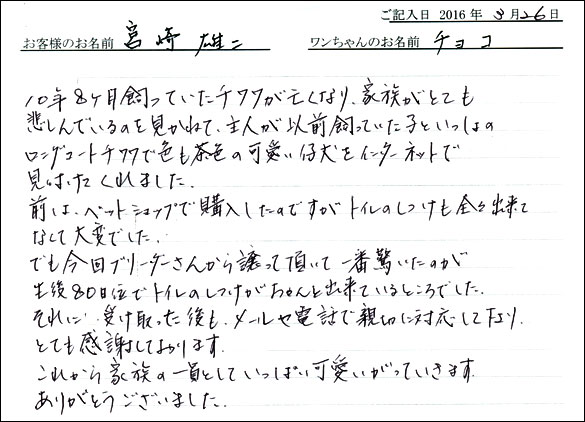 ご記入日 2016年 3月26日
お客様のお名前 宮崎 雄二 ワンちゃんのお名前 チョコ
10年8ヶ月飼っていたチワワが亡くなり、家族がとても
悲しんでいるのを見かねて、主人が以前飼っていた子といっしょの
ロングコートチワワで色も茶色の可愛い仔犬をインターネットで
見つけてくれました。
前は、ペットショップで購入したのですがトイレのしつけも全々出来て
なくて大変でした。
でも今回ブリーダーさんから譲って頂いて一番驚いたのが
生後80日位でトイレのしつけがちゃんと出来ているところでした。
それに、受け取った後も、メールや電話で親切に対応して下さり、
とても感謝しております。
これから家族の一員としていっぱい可愛いがっていきます。
ありがとうございました。